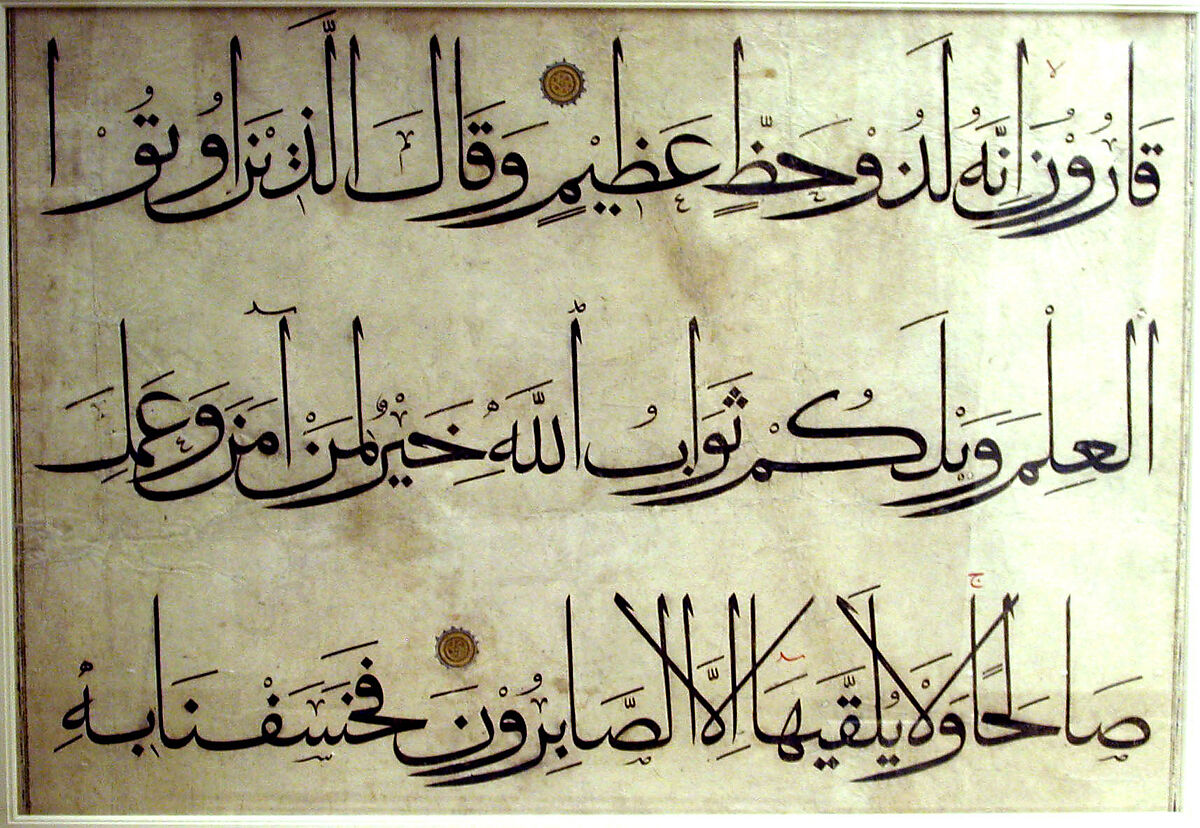 قَارُوْنُ اِنَّهُ لَذُوْ حَظٍّ عَظِيْمٍ وَقَالَ الَّذِيْنَ اُوتُوا
الْعِلْمَ وَيْلَكُمْ ثَوَابُ اللّٰهِ خَيْرٌ لِمَنْ آمَنَ وَعَمِلَ
صَالِحًا وَلَا يُلَقَّيهَا اِلَّا الصَّابِرُوْنَ فَخَسَفْنَا بِهِ